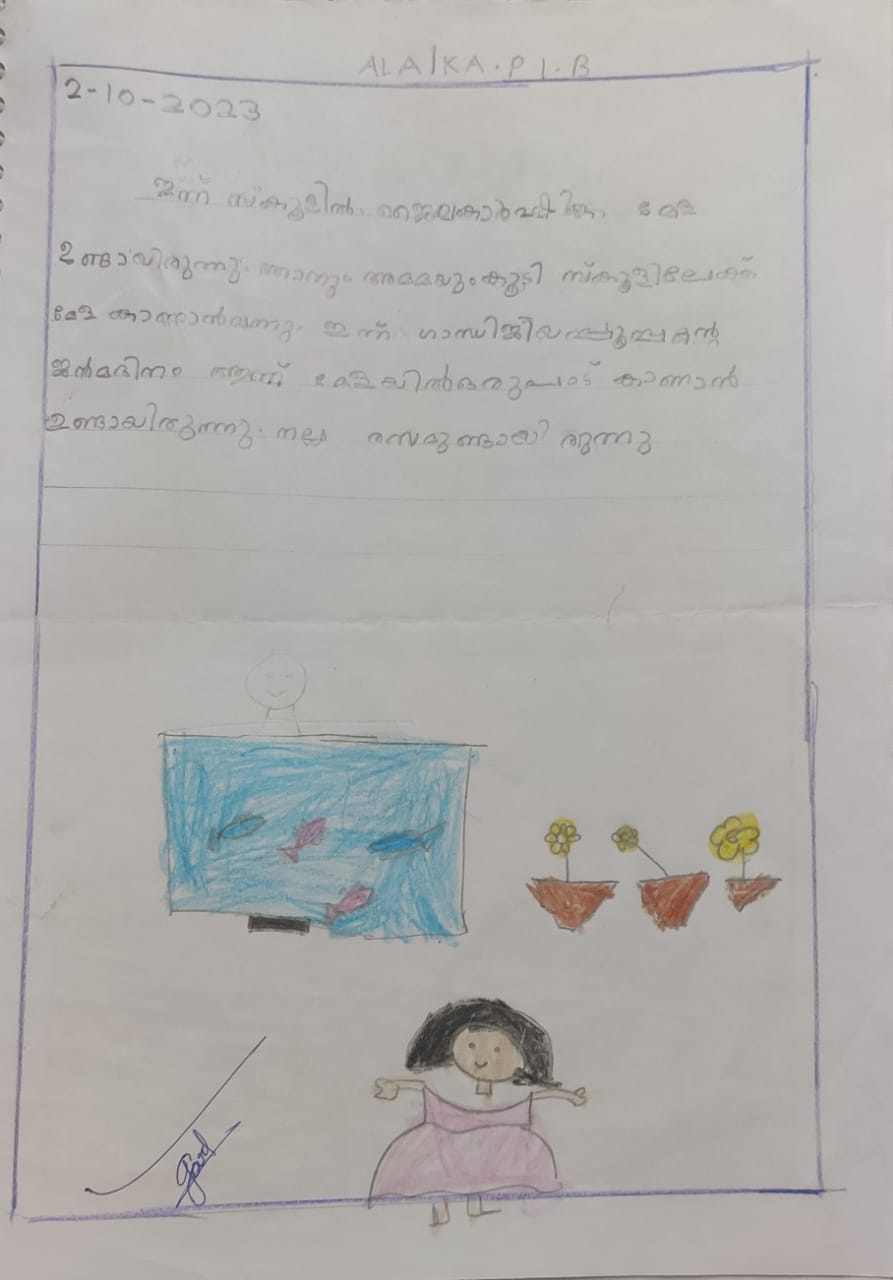 ALAIKA. P 1. B
2-10-2023
ഇന്ന് സ്കൂളിൽ മേള
ഉണ്ടായിരുന്നു. ഞാനും അമ്മയും കൂടി സ്കൂളിലേക്ക്
മേള കാണാൻ വന്നു. ഇന്ന് ഗാന്ധിജി
ജൻമദിനം ആണ് മേളയിൽ ഒരുപാട് കാണാൻ
ഉണ്ടായിരുന്നു. നല്ല രസമുണ്ടായി രുന്നു